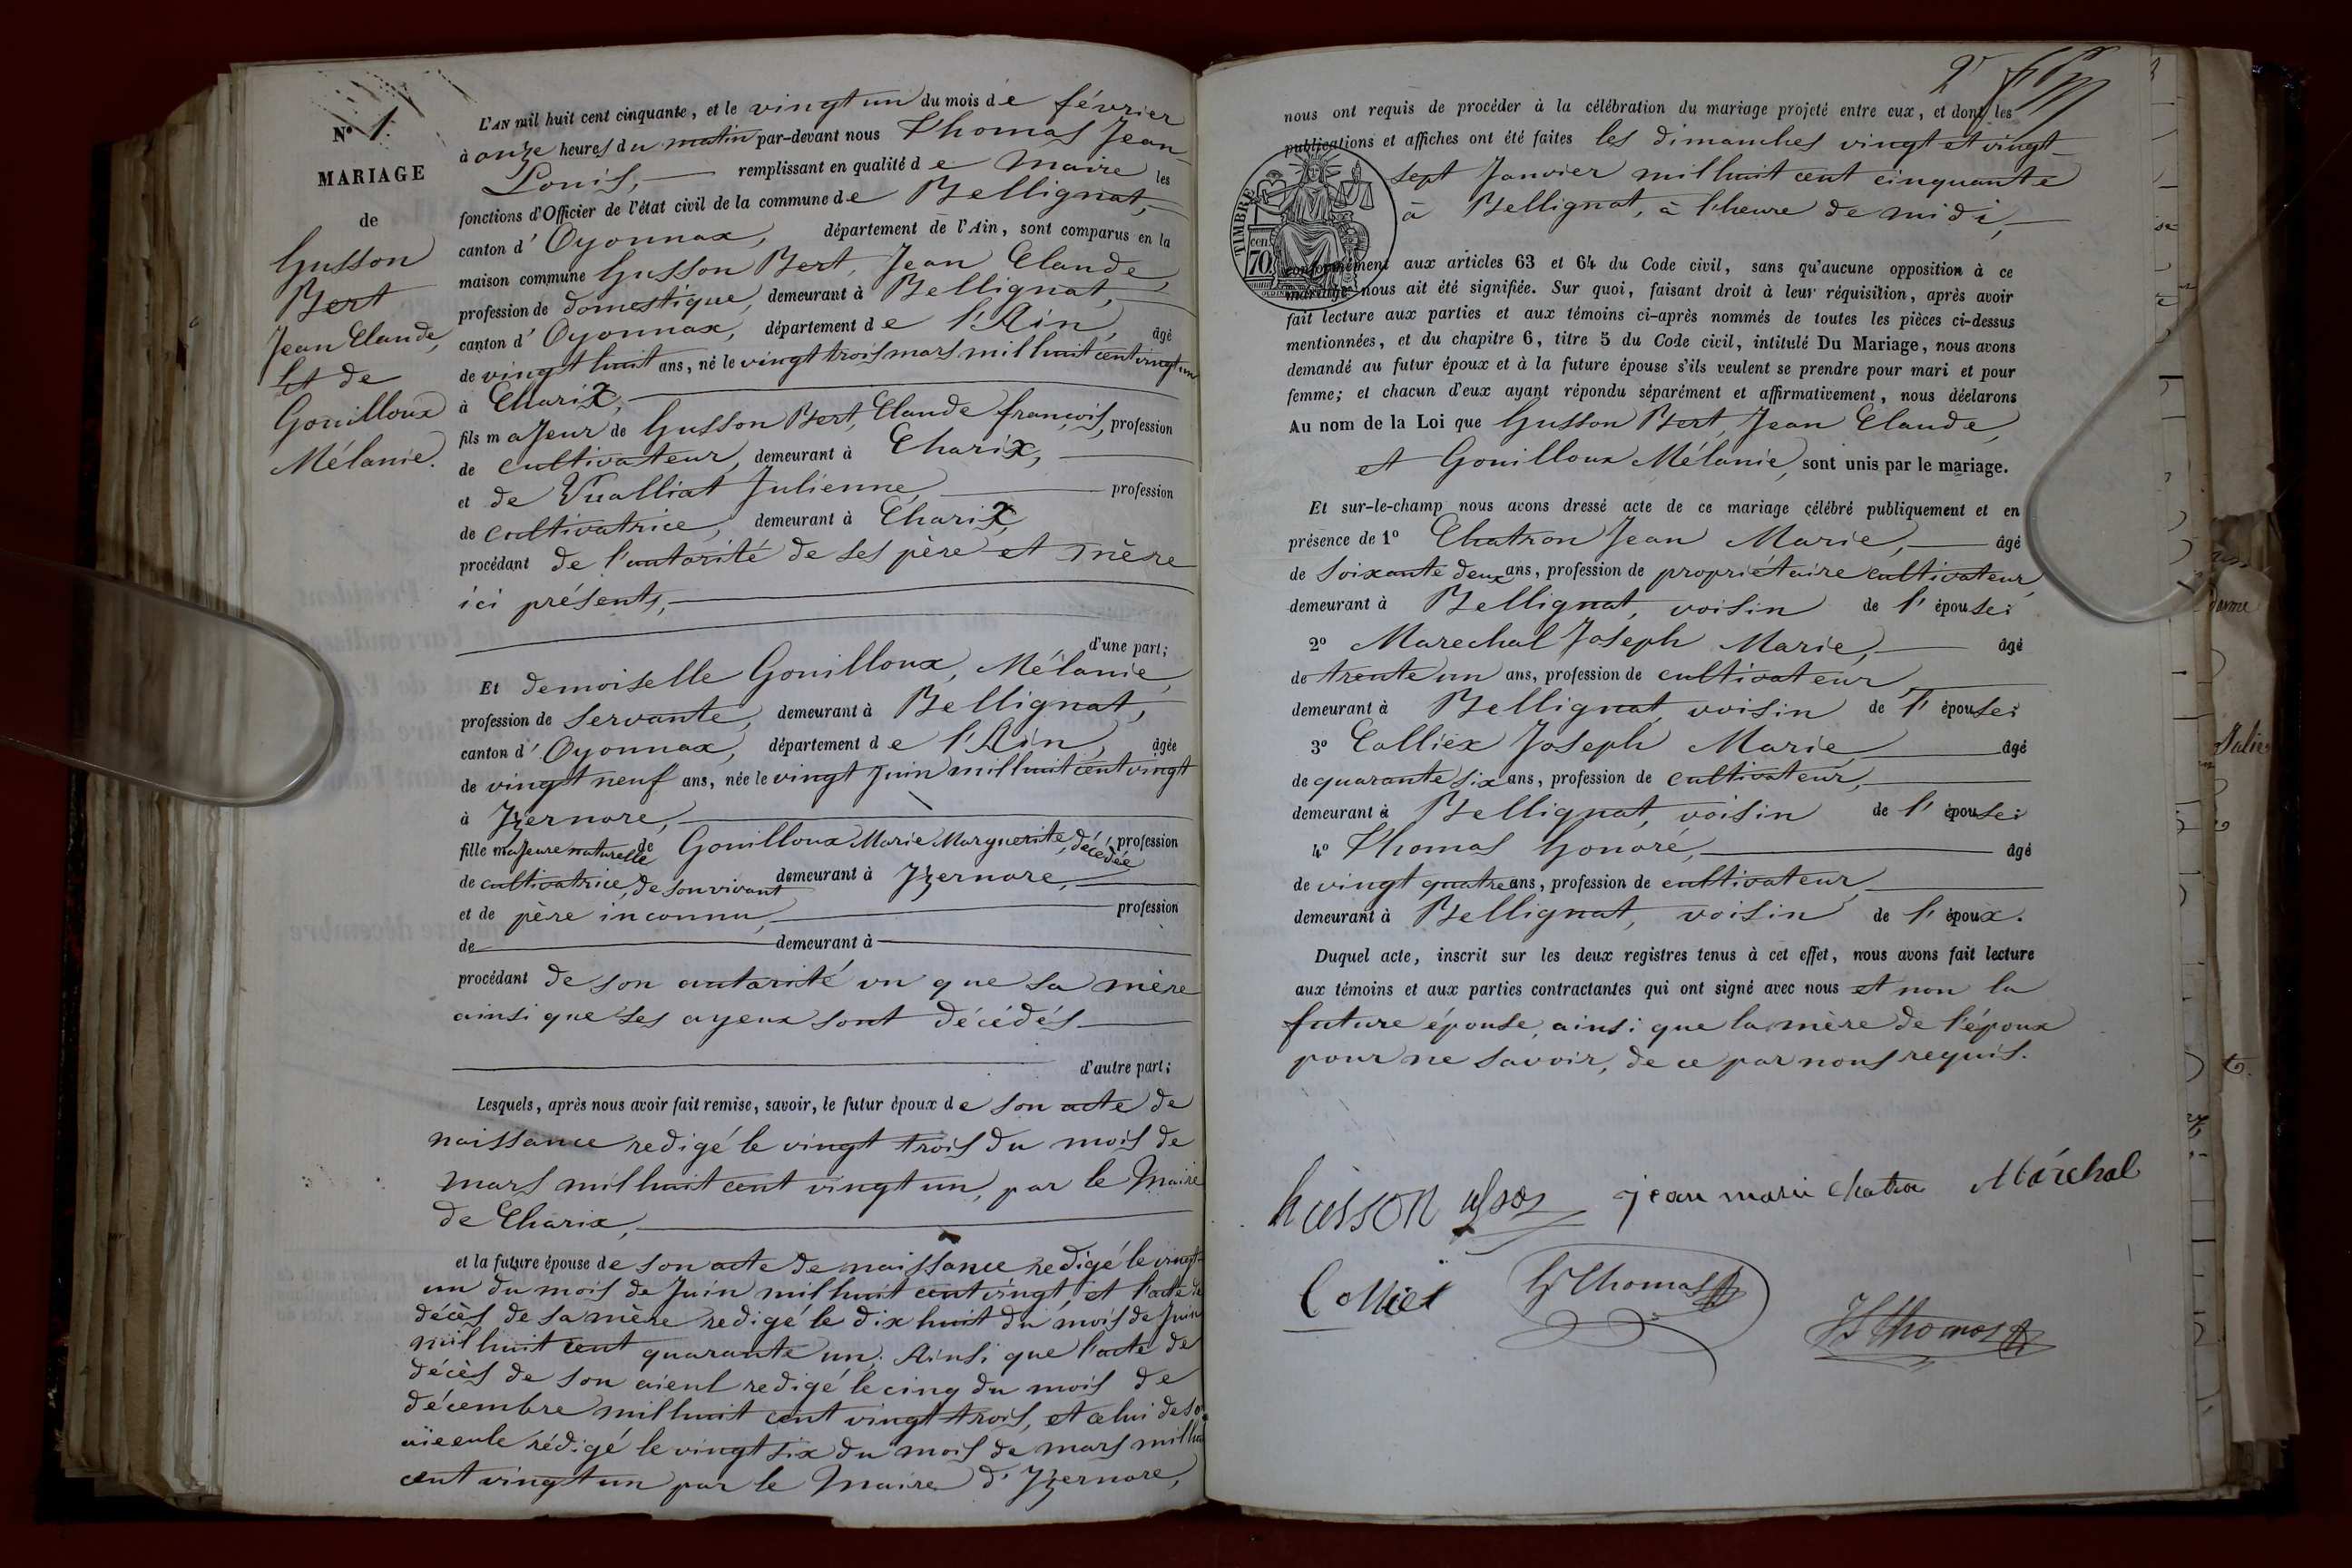 N° 1.
MARIAGE
de
Husson
Bert
Jean Claude,
Et de
Gouilloux
Mélanie.
L'AN mil huit cent cinquante, et le vingt un du mois de février
à onze heures du matin par-devant nous Thomas Jean-
Louis, remplissant en qualité de Maire les
fonctions d'Officier de l'état civil de la commune de Bellignat,
canton d'Oyonnax, département de l'Ain, sont comparus en la
maison commune Husson Bert, Jean Claude,
profession de domestique, demeurant à Bellignat,
canton d'Oyonnax, département de l'Ain, âgé
de vingt huit ans, né le vingt trois mars mil huit cent vingt un
à Charix,
fils majeur de Husson Bert, Claude françois, profession
de cultivateur, demeurant à Charix,
et de Vualliat Julienne, profession
de cultivatrice, demeurant à Charix,
procédant de l'autorité de ses père et mère
ici présents,
d'une part;
Et demoiselle Gouilloux, Mélanie,
profession de servante, demeurant à Bellignat,
canton d'Oyonnax, département de l'Ain, âgée
de vingt neuf ans, née le vingt Juin mil huit cent vingt
à Izernore,
fille majeure naturelle de Gouilloux Marie Marguerite, décédée profession
de cultivatrice, de son vivant demeurant à Izernore,
et de père inconnu, profession
de demeurant à
procédant de son autorité vu que sa mère
ainsi que ses ayeux sont décédés
d'autre part;
Lesquels, après nous avoir fait remise, savoir, le futur époux de son acte de
naissance redigé le vingt trois du mois de
mars mil huit cent vingt un, par le Maire
de Charix,
et la future épouse de son acte de naissance redigé le vingt-
un du mois de Juin mil huit cent vingt, et l'acte de
décès de sa mère redigé le dix huit du mois de Juin
mil huit cent quarante un, Ainsi que l'acte de
décès de son aieul redigé le cinq du mois de
décembre mil huit cent vingt trois, et celui de so
aïeeule rédigé le vingt six du mois de mars mil hui
cent vingt un par le Maire d'Izernore,
2
nous ont requis de procéder à la célébration du mariage projeté entre eux, et dont les
publications et affiches ont été faites les dimanches vingt et vingt-
sept Janvier mil huit cent cinquante
à Bellignat, à l'heure de midi,
TIMBRE
70
cen.
conformément aux articles 63 et 64 du Code civil, sans qu'aucune opposition à ce
mariage nous ait été signifiée. Sur quoi, faisant droit à leur réquisition, après avoir
fait lecture aux parties et aux témoins ci-après nommés de toutes les pièces ci-dessus
mentionnées, et du chapitre 6, titre 5 du Code civil, intitulé Du Mariage, nous avons
demandé au futur époux et à la future épouse s'ils veulent se prendre pour mari et pour
femme; et chacun d'eux ayant répondu séparément et affirmativement, nous déclarons
Au nom de la Loi que Husson Bert, Jean Claude,
et Gouilloux Mélanie, sont unis par le mariage.
Et sur-le-champ nous avons dressé acte de ce mariage célébré publiquement et en
présence de 1° Chatron Jean Marie, âgé
de soixante deux ans, profession de propriétaire cultivateur,
demeurant à Bellignat, voisin de l'épouse;
2° Marechal Joseph Marie, âgé
de trente un ans, profession de cultivateur
demeurant à Bellignat, voisin de l'épouse;
3° Colliex Joseph Marie âgé
de quarante six ans, profession de cultivateur,
demeurant à Bellignat, voisin de l'épouse;
4° Thomas Honoré, âgé
de vingt quatre ans, profession de cultivateur
demeurant à Bellignat, voisin de l'époux.
Duquel acte, inscrit sur les deux registres tenus à cet effet, nous avons fait lecture
aux témoins et aux parties contractantes qui ont signé avec nous et non la
future épouse, ainsi que la mère de l'époux
pour ne savoir, de ce par nous requis.
husson jean marie chatron Maréchal
Colliex H Thomas
JL thomas